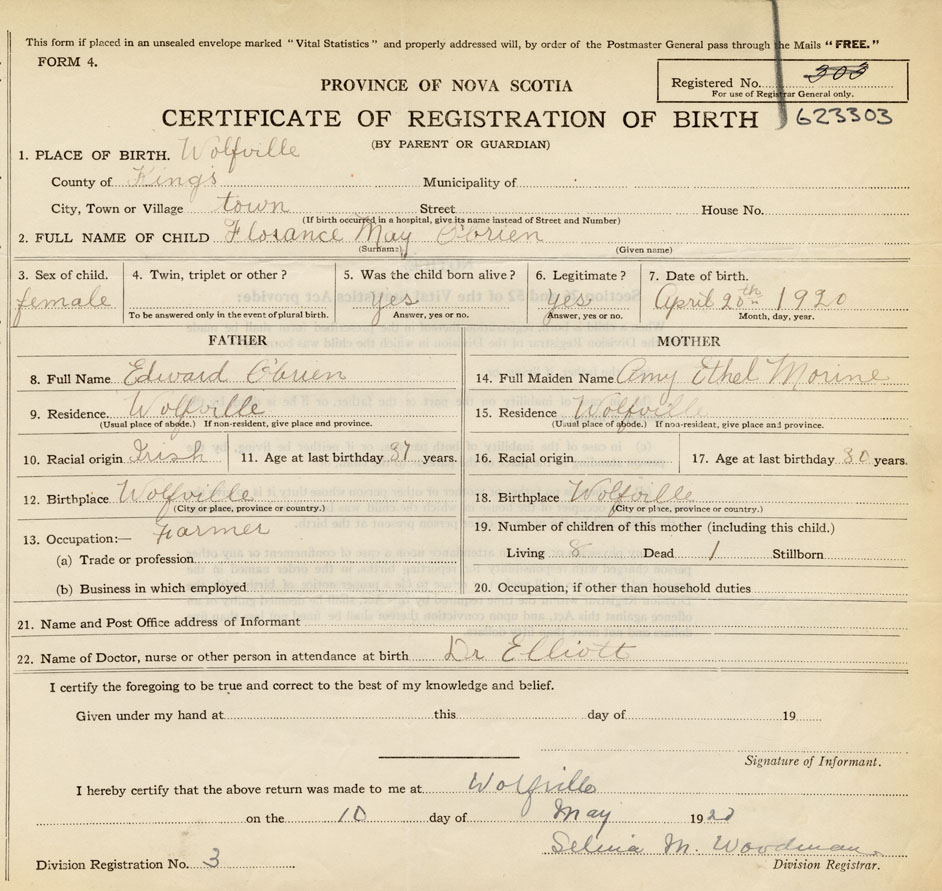 This form if placed in an unsealed envelope marked "Vital Statistics" and properly addressed will, by order of the Postmaster General pass through the Mails "FREE."
FORM 4.
PROVINCE OF NOVA SCOTIA
Registered No. 303
For use of Registrar General only.
CERTIFICATE OF REGISTRATION OF BIRTH
623303
(BY PARENT OR GUARDIAN)
1. PLACE OF BIRTH. Wolfville
County of King's Municipality of
City, Town or Village town Street House No.
(If birth occurred in a hospital, give its name instead of Street and Number)
2. FULL NAME OF CHILD Florance May O'brien
(Surname) (Given name)
3. Sex of child. 4. Twin, triplet or other? 5. Was the child born alive? 6. Legitimate? 7. Date of birth.
female yes yes April 20th 1920
To be answered only in the event of plural birth. Answer, yes or no. Answer, yes or no. Month, day, year.
FATHER MOTHER
8. Full Name Edward O'brien 14. Full Maiden Name Amy Ethel Morine
9. Residence. Wolfville 15. Residence Wolfville
(Usual place of abode.) If non-resident, give place and province. (Usual place of abode.) If non-resident, give place and province.
10. Racial origin Irish 11. Age at last birthday 37 years. 16. Racial origin 17. Age at last birthday 30 years.
12. Birthplace Wolfville 18. Birthplace Wolfville
(City or place, province or country.) (City or place, province or country.)
13. Occupation:— Farmer 19. Number of children of this mother (including this child.)
(a) Trade or profession Living 8 Dead 1 Stillborn
(b) Business in which employed 20. Occupation, if other than household duties
21. Name and Post Office address of Informant
22. Name of Doctor, nurse or other person in attendance at birth Dr Elliott
I certify the foregoing to be true and correct to the best of my knowledge and belief.
Given under my hand at this day of 19
Signature of Informant.
I hereby certify that the above return was made to me at Wolfville
on the 10 day of May 1920
Selina M. Woodman
Division Registration No. 3 Division Registrar.